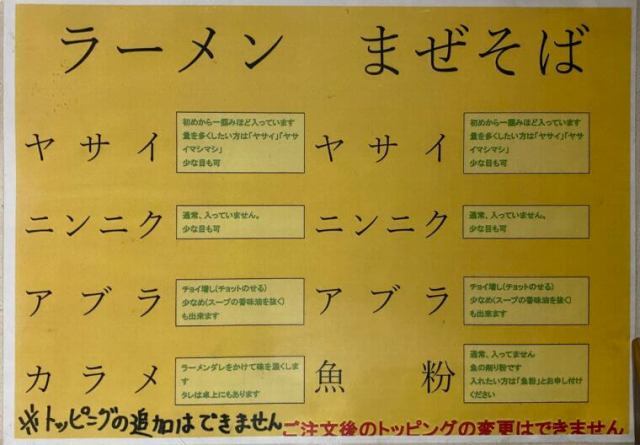 ラーメン
まぜそば
ヤサイ
初めから一掴みほど入っています
量を多くしたい方は「ヤサイ」「ヤサ
イマシマシ」
少な目も可
ニンニク
通常、入っていません。
少な目も可
アブラ
チョイ増し(チョットのせる)
少なめ(スープの香味油を抜く)
も出来ます
カラメ
ラーメンダレをかけて味を濃くしま
す
タレは卓上にもあります
ヤサイ
初めから一掴みほど入っています
量を多くしたい方は「ヤサイ」「ヤサ
イマシマシ」
少な目も可
ニンニク
通常、入っていません。
少な目も可
アブラ
チョイ増し(チョットのせる)
少なめ(スープの香味油を抜く)
も出来ます
魚粉
通常、入ってません
魚の削り粉です
入れたい方は「魚粉」とお申し付け
ください
※トッピングの追加はできません
ご注文後のトッピングの変更はできません